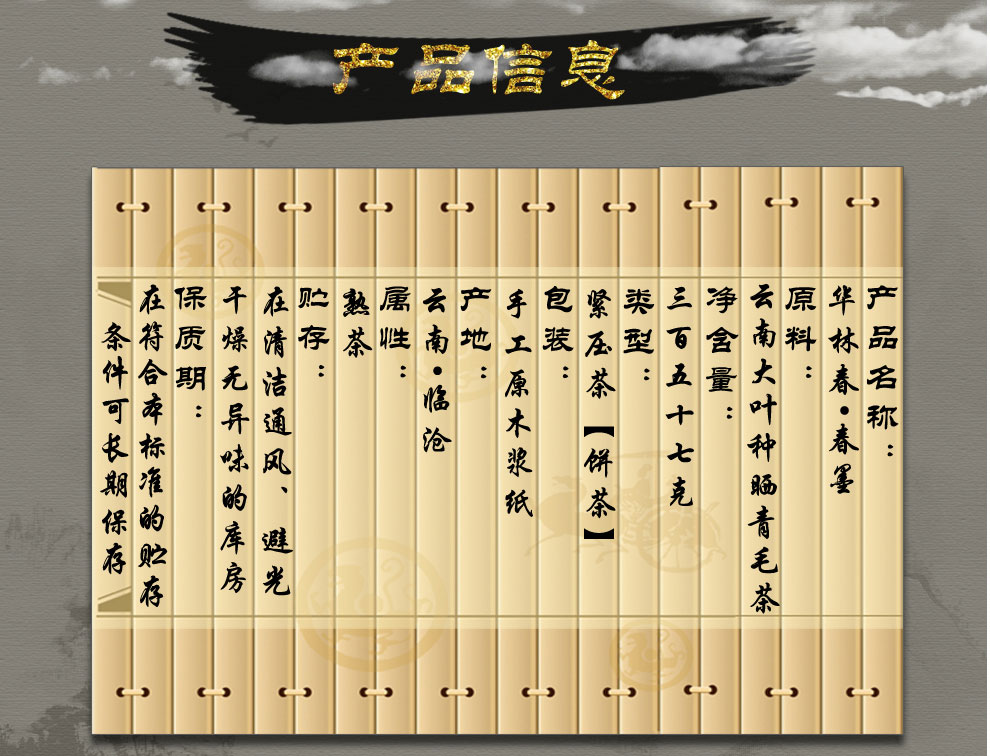 产品信息
产品名称：
华林春•春墨
原料：
云南大叶种晒青毛茶
净含量：
三百五十七克
类型：
紧压茶【饼茶】
包装：
手工原木浆纸
产地：
云南•临沧
属性：
熟茶
贮存：
在清洁通风、避光
干燥无异味的库房
保质期：
在符合本标准的贮存
条件可长期保存